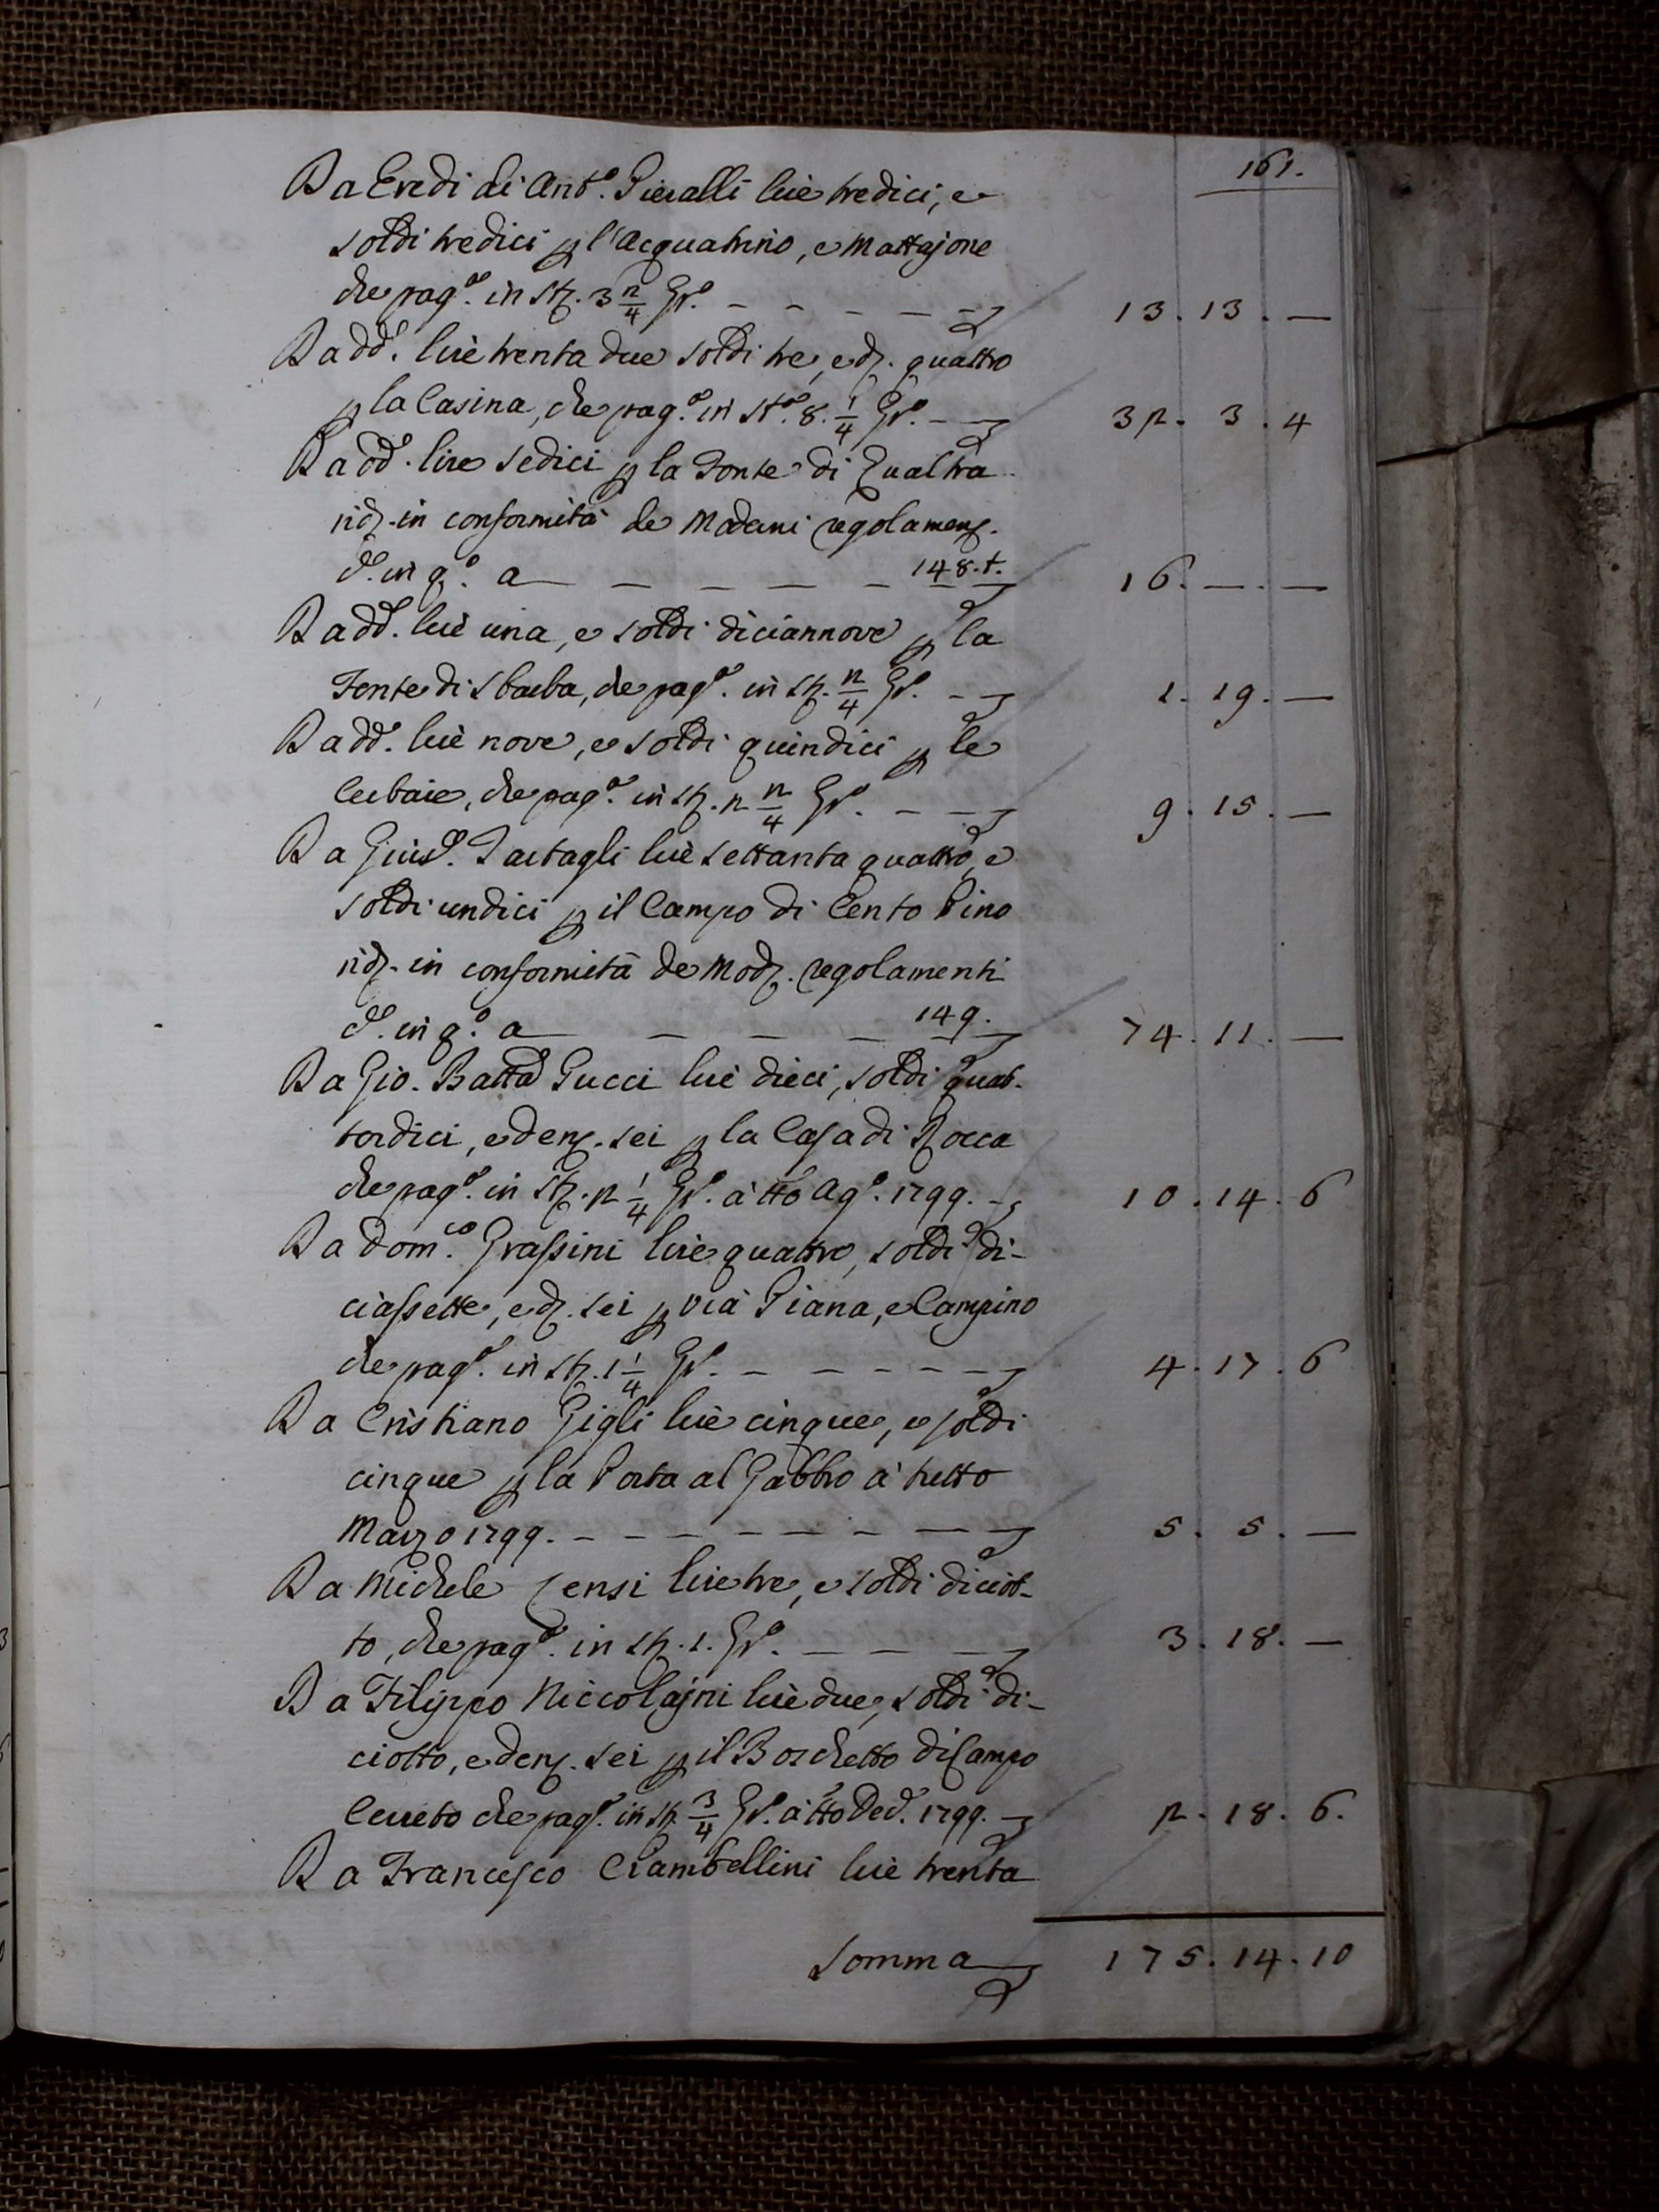 161.
Da Eredi di Ant.º Pieralli lire tredici, e
soldi tredici p l'Acquatrino, e Mattajone
che pag.º in St. 3 2/4 Gr.º - - - - - 13. 13. —
Da dd.º lire trenta due soldi tre, e d. quattro
p la Casina, che pag.º in St.ª 8. 1/4 Gr.º - - 32. 3. 4
Da dd.º lire sedici p la Fonte di Qualtra
rid. in conformità de Moderni regolamen.
d.º in q.º a — — — — — 148.t. 16. — . —
Da dd.º lire una, e soldi diciannove p la
Fonte di Sbarba, che pag.º in St. 2/4 Gr.º - - 1. 19. —
Da dd.º lire nove, e soldi quindici p le
Cerbaie, che pag.º in St. 2 2/4 Gr.º - - - 9. 15. —
Da Gius.º Tartagli lire settanta quattro, e
soldi undici p il Campo di Cento Pino
rid. in conformità de Mod. regolamenti
d.º in q.º a — — — — 149. 74. 11. —
Da Gio. Batta Pucci lire dieci, soldi quat-
tordici, e den. sei p la Casa di Rocca
che pag.º in St. 2 1/4 Gr.º à tto Ag.º 1799. - 10. 14. 6
Da Dom.co Grassini lire quattro, soldi di-
ciassette, e d. sei p via Piana, e Campino
che pag.º in St. 1 1/4 Gr.º - - - - - - 4. 17. 6
Da Cristiano Gigli lire cinque, e soldi
cinque p la Porta al Gabbro à tutto
Marzo 1799. - - - - - - - - 5. 5. —
Da Michele Censi lire tre, e soldi diciot-
to, che pag.º in St. 1. Gr.º - - - - 3. 18. —
Da Filippo Niccolajni lire due, soldi di-
ciotto, e den. sei p il Boschetto di Campo
Cerreto che pag.º in St. 3/4 Gr.º à tto Dec.º 1799. - 2. 18. 6.
Da Francesco Ciambellini lire trenta
Somma 175. 14. 10